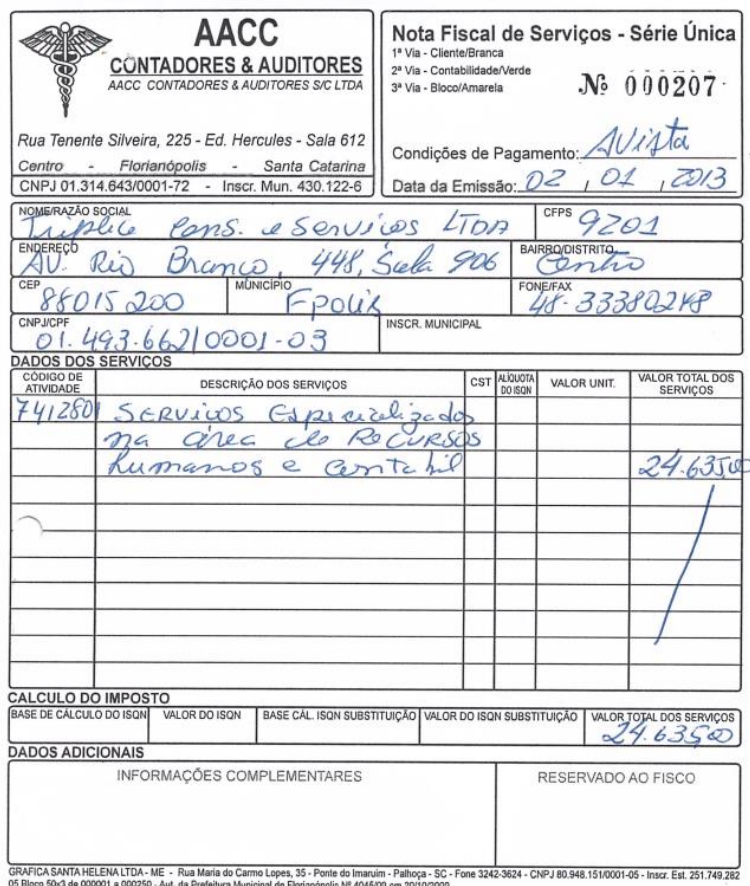 AACC
CONTADORES & AUDITORES
AACC CONTADORES & AUDITORES S/C LTDA
Rua Tenente Silveira, 225 - Ed. Hercules - Sala 612
Centro - Florianópolis - Santa Catarina
CNPJ 01.314.643/0001-72 - Inscr. Mun. 430.122-6
Nota Fiscal de Serviços - Série Única
1ª Via - Cliente/Branca
2ª Via - Contabilidade/Verde
3ª Via - Bloco/Amarela
Nº 000207
Condições de Pagamento: AVista
Data da Emissão: 02 / 01 / 2013
NOME/RAZÃO SOCIAL
Triplice Cons. e Serviços LTDA
CFPS
9201
ENDEREÇO
AV. Rio Branco, 448, Sala 906
BAIRRO/DISTRITO
Centro
CEP
88015200
MUNICÍPIO
Fpolis
FONE/FAX
48-33380248
CNPJ/CPF
01.493.662/0001-03
INSCR. MUNICIPAL
DADOS DOS SERVIÇOS
CÓDIGO DE ATIVIDADE DESCRIÇÃO DOS SERVIÇOS CST ALÍQUOTA DO ISQN VALOR UNIT. VALOR TOTAL DOS SERVIÇOS
7412801 SERVIÇOS Especializados
na área de RECURSOS
humanos e contabil 24.635,00
CALCULO DO IMPOSTO
BASE DE CÁLCULO DO ISQN VALOR DO ISQN BASE CÁL. ISQN SUBSTITUIÇÃO VALOR DO ISQN SUBSTITUIÇÃO VALOR TOTAL DOS SERVIÇOS
24.635,00
DADOS ADICIONAIS
INFORMAÇÕES COMPLEMENTARES RESERVADO AO FISCO
GRAFICA SANTA HELENA LTDA - ME - Rua Maria do Carmo Lopes, 35 - Ponte do Imaruim - Palhoça - SC - Fone 3242-3624 - CNPJ 80.948.151/0001-05 - Inscr. Est. 251.749.282
05 Bloco 50x3 de 000001 a 000250 - Aut. da Prefeitura Municipal de Florianópolis Nº